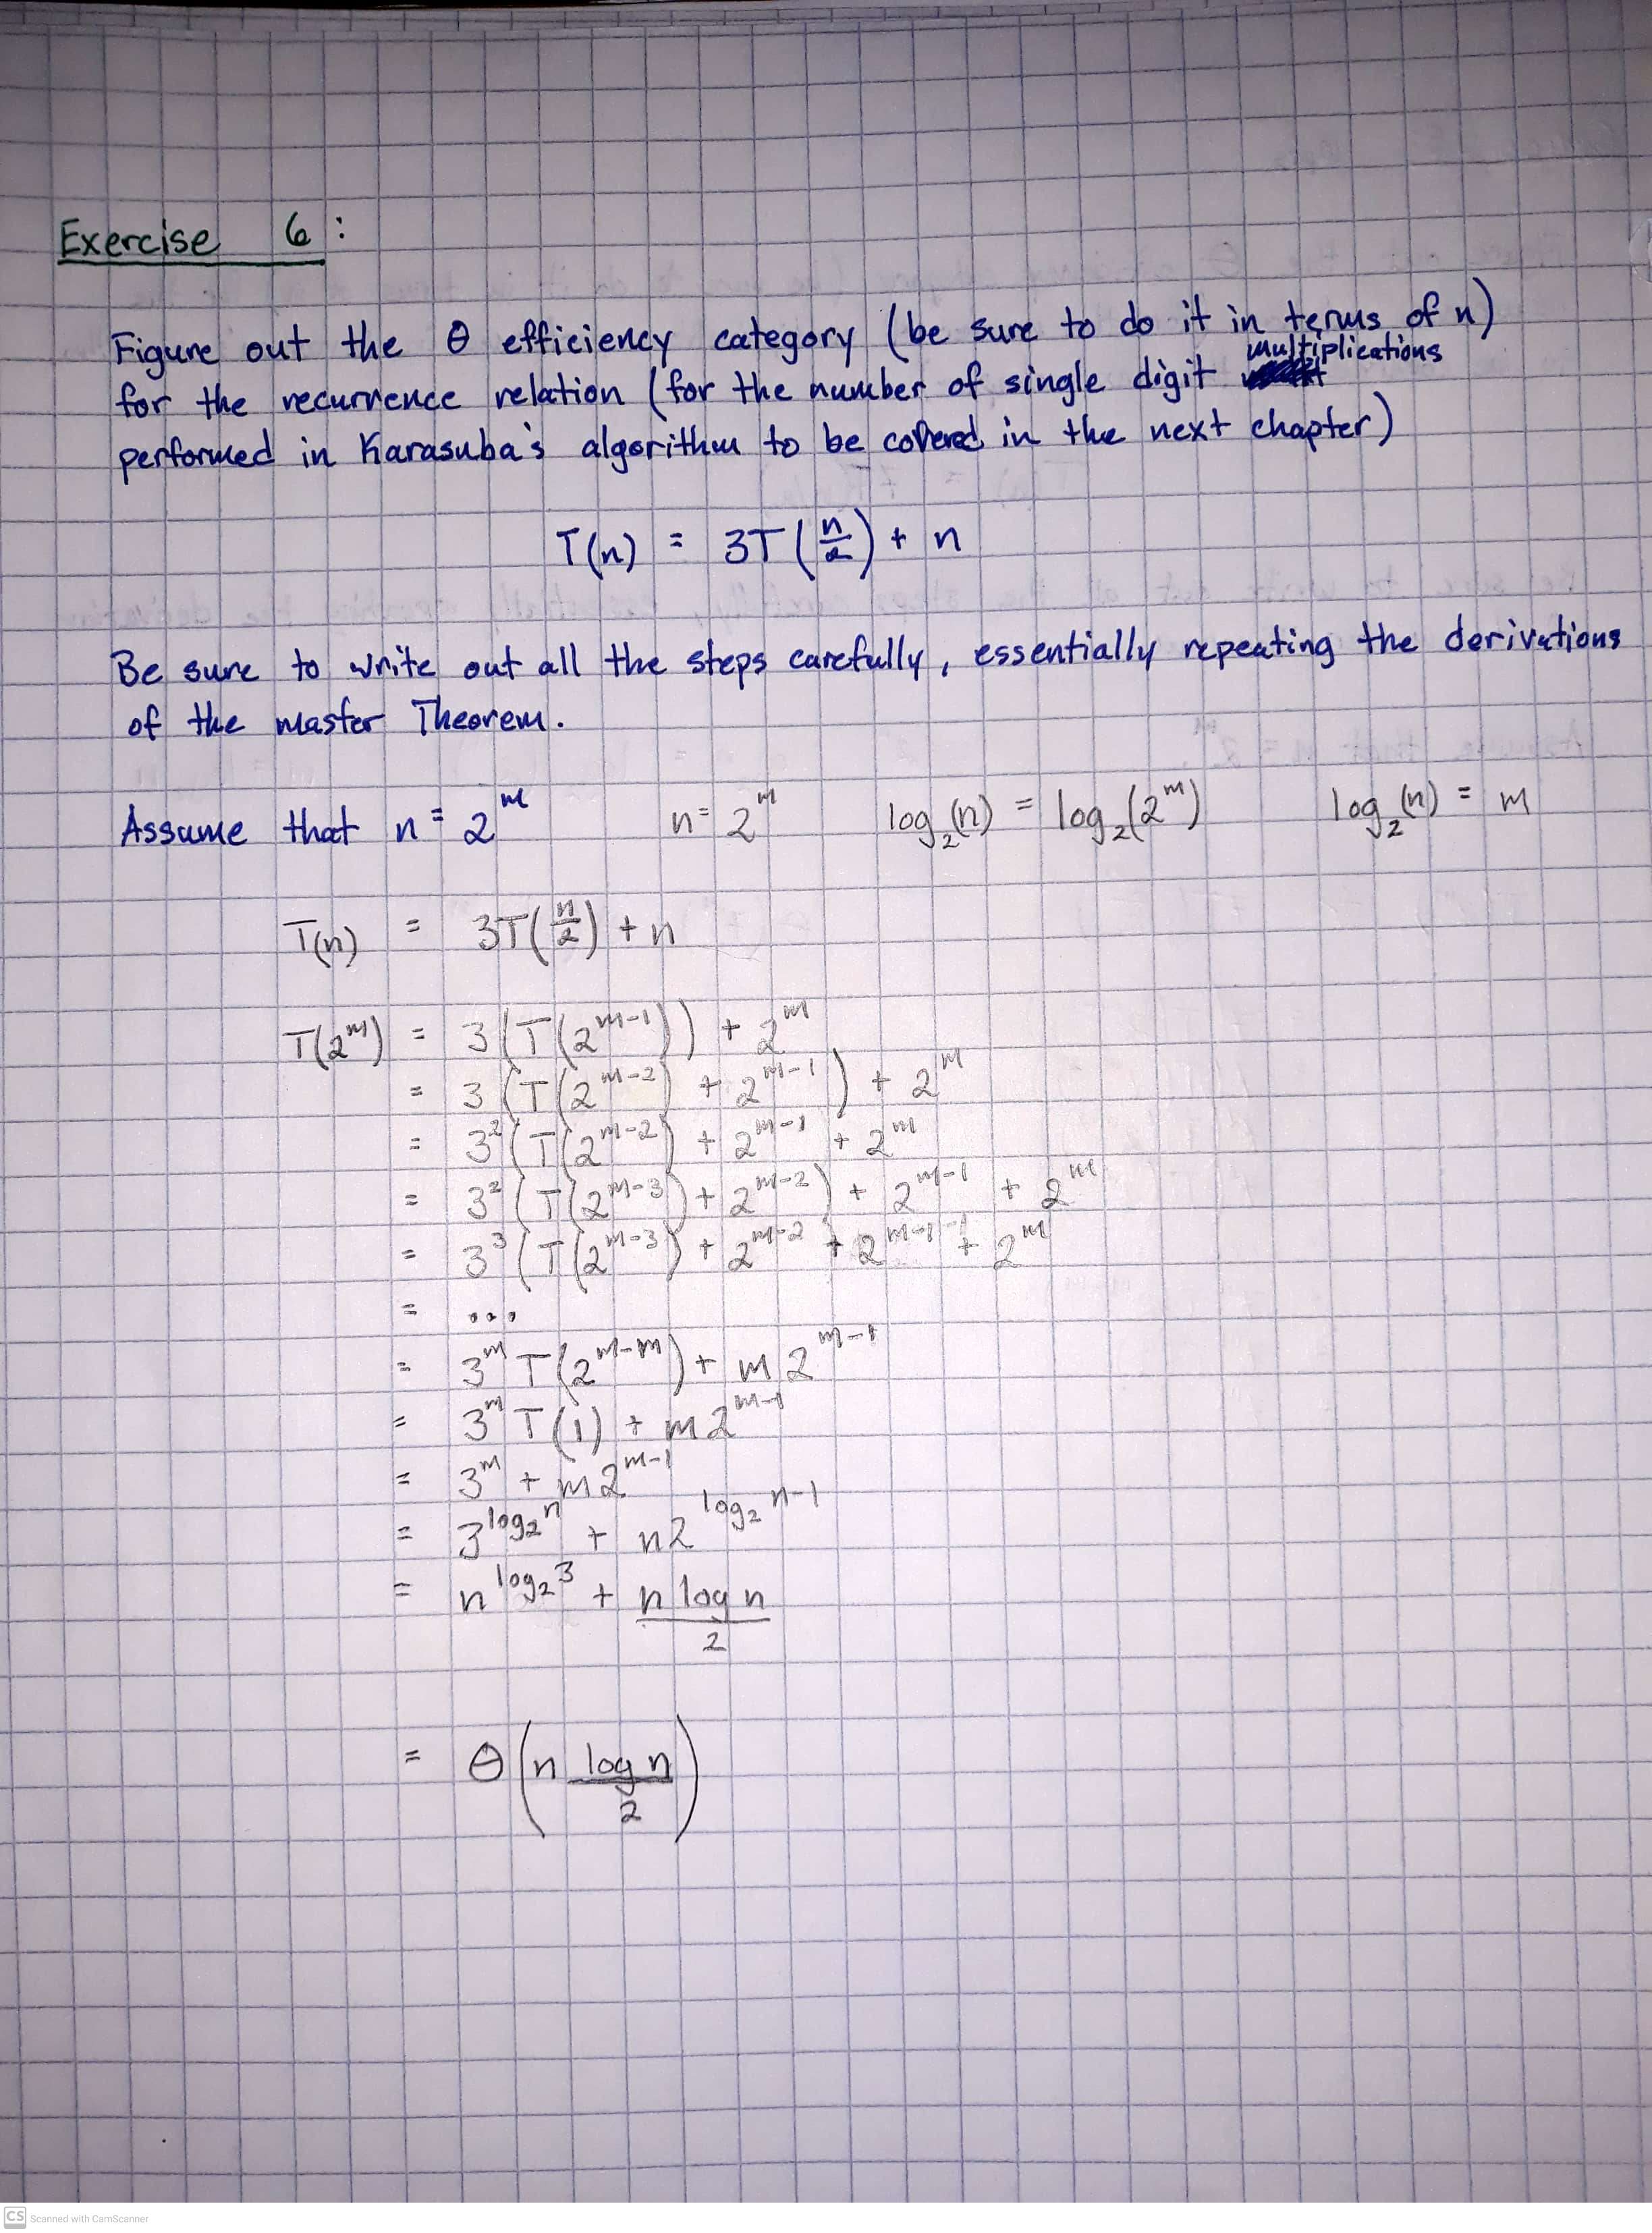 Exercise 6:
Figure out the θ efficiency category (be sure to do it in terms of n)
for the recurrence relation (for the number of single digit multiplications
performed in Karasuba's algorithm to be covered in the next chapter)
T(n) = 3T(n/2) + n
Be sure to write out all the steps carefully, essentially repeating the derivations
of the master Theorem.
Assume that n = 2^m n = 2^m log_2(n) = log_2(2^m) log_2(n) = m
T(n) = 3T(n/2) + n
T(2^m) = 3(T(2^{m-1})) + 2^m
= 3(T(2^{m-2}) + 2^{m-1}) + 2^m
= 3^2(T(2^{m-2}) + 2^{m-1} + 2^m
= 3^2(T(2^{m-3}) + 2^{m-2}) + 2^{m-1} + 2^m
= 3^3(T(2^{m-3}) + 2^{m-2} + 2^{m-1} + 2^m
= ...
= 3^m T(2^{m-m}) + m2^{m-1}
= 3^m T(1) + m2^{m-1}
= 3^m + m2^{m-1}
= 3^{log_2 n} + n2^{log_2 n-1}
= n^{log_2 3} + n log n / 2
= θ(n log n / 2)
CS Scanned with CamScanner